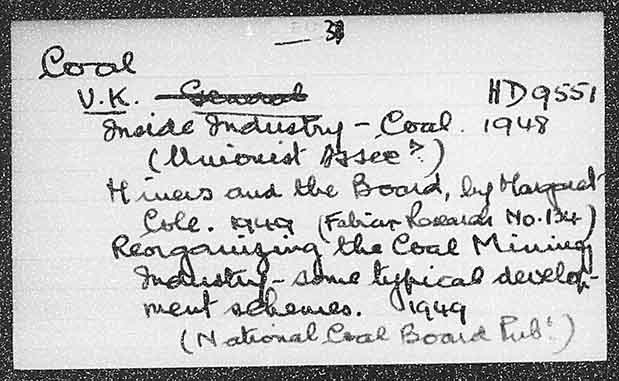 — 38
Coal
U.K. General HD9551
Inside Industry - Coal. 1948
(Unionist Assocn.)
Miners and the Board, by Margaret
Cole. 1949 (Fabian Research No. 134)
Reorganizing the Coal Mining
Industry - some typical develop-
ment schemes. 1949
(National Coal Board Pubn.)